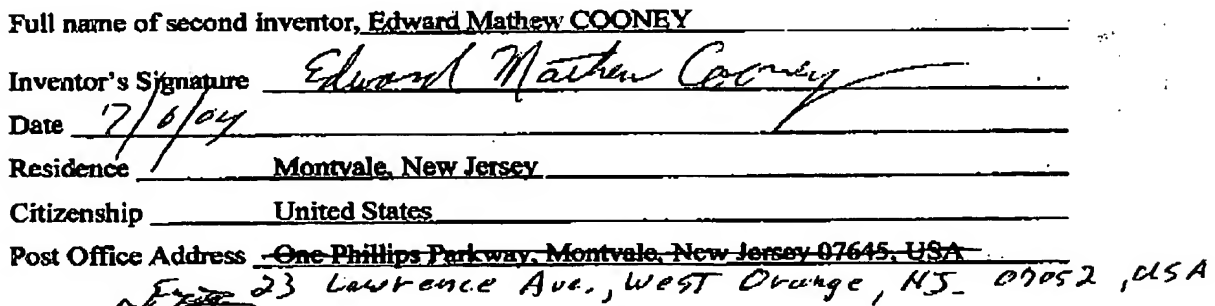 Full name of second inventor, Edward Mathew COONEY
Inventor's Signature Edward Mathew Cooney
Date 7/6/04
Residence Montvale, New Jersey
Citizenship United States
Post Office Address One Phillips Parkway, Montvale, New Jersey 07645, USA
23 Lawrence Ave., West Orange, NJ. 07052, USA